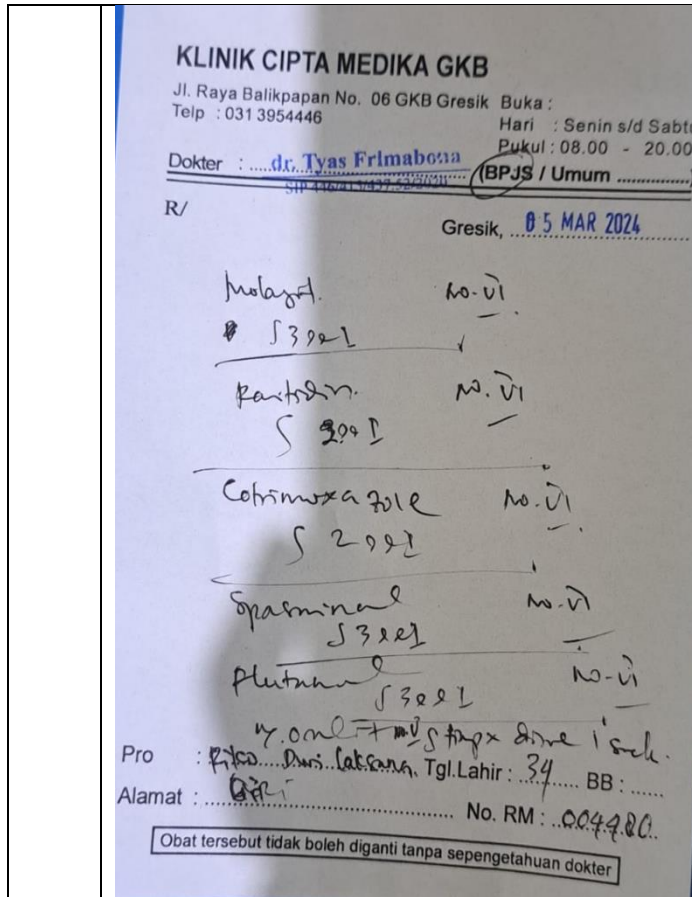 KLINIK CIPTA MEDIKA GKB
Jl. Raya Balikpapan No. 06 GKB Gresik
Telp : 031 3954446
Buka :
Hari : Senin s/d Sabtu
Pukul : 08.00 - 20.00
Dokter : dr. Tyas Frimabona
(BPJS / Umum
R/
Gresik, 05 MAR 2024
No. VI
S 3 dd 1
No. VI
S dd I
Cotrimoxazole No. VI
S 2 dd 1
Spasminal No. VI
S 3 dd 1
No. VI
S 3 dd 1
Pro : Dwi Tgl.Lahir : 34 BB :
Alamat :
No. RM : 004480
Obat tersebut tidak boleh diganti tanpa sepengetahuan dokter